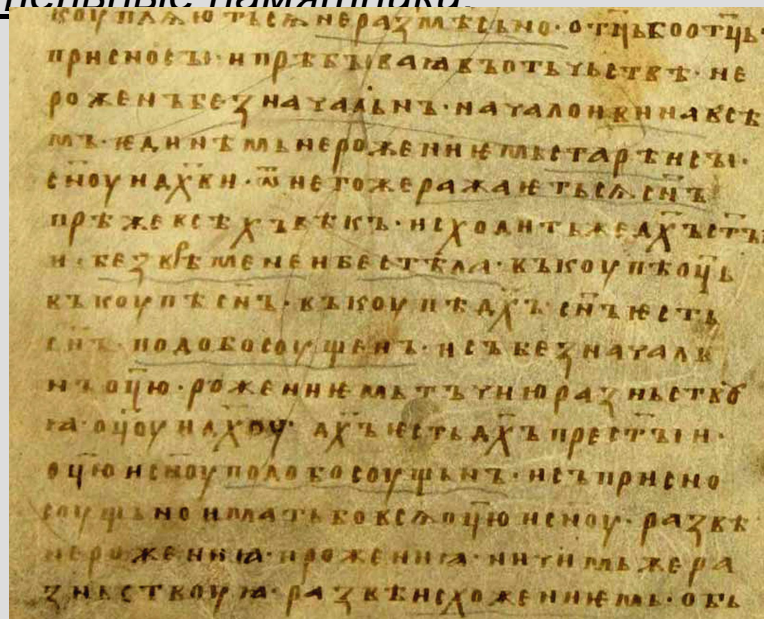 тельные памятники.
коупляютьсѧ неразмѣсьно· о҃ць бо о҃ць·
присносы· и прѣбываꙗ въ отьчьствѣ· не
роженъ безначальнъ· начало и вина всѣ
мъ· ѥдинѣмь нерожениѥмь старѣи сы·
с҃ноу и д҃хви· ѿнегоже ражаѥтьсѧ с҃нъ
прѣже всѣхъ вѣкъ· исходить же д҃хъ с҃тъ
и· безвремене и бестѣла· въкоупѣ о҃ць
въкоупѣ с҃нъ· въкоупѣ д҃хъ· с҃нъ ѥсть
с҃нъ· подобосоущенъ· и събезначаль
нъ о҃цю· рожениѥмь тъчию разньствоу
ꙗ· о҃цоу и д҃хоу· д҃хъ ѥсть д҃хъ прест҃ыи·
о҃цю и с҃ноу подобосоущьнъ· и съприсно
соущьно имать бо всѧ о҃цю и с҃ноу· развѣ
нерожениꙗ· и рожениꙗ· ни чимьже ра
зньствоуꙗ· развѣ исхожениѥмь· отъ